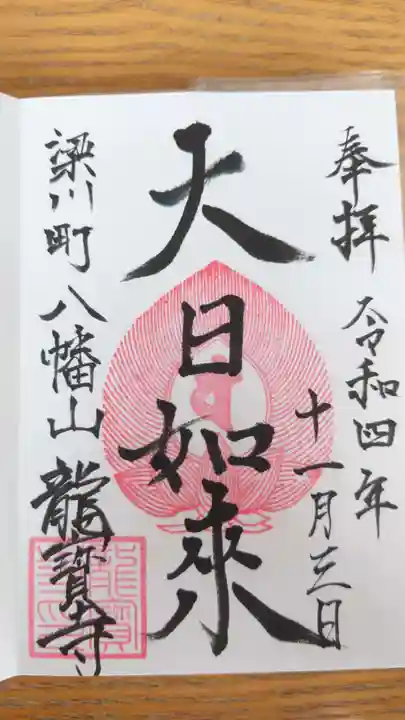 奉拝
令和四年
十一月三日
大日如来
梁川町八幡山龍寶寺